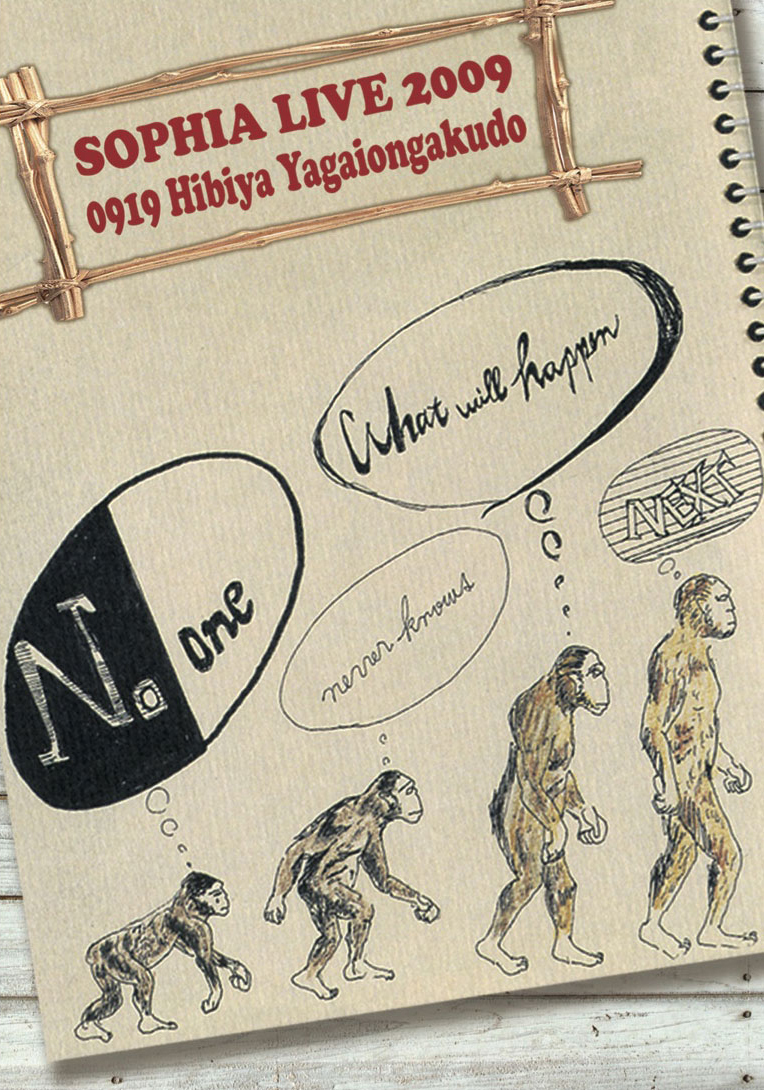 SOPHIA LIVE 2009
0919 Hibiya Yagaiongakudo
No one
never knows
What will happen
NEXT